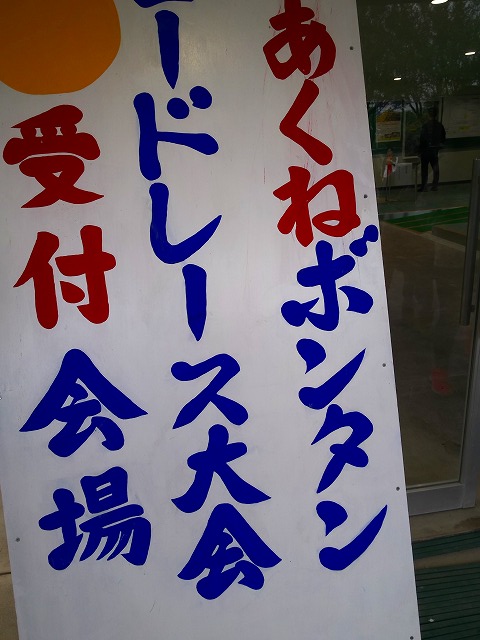 あくねボンタン
ードレース大会
受付会場